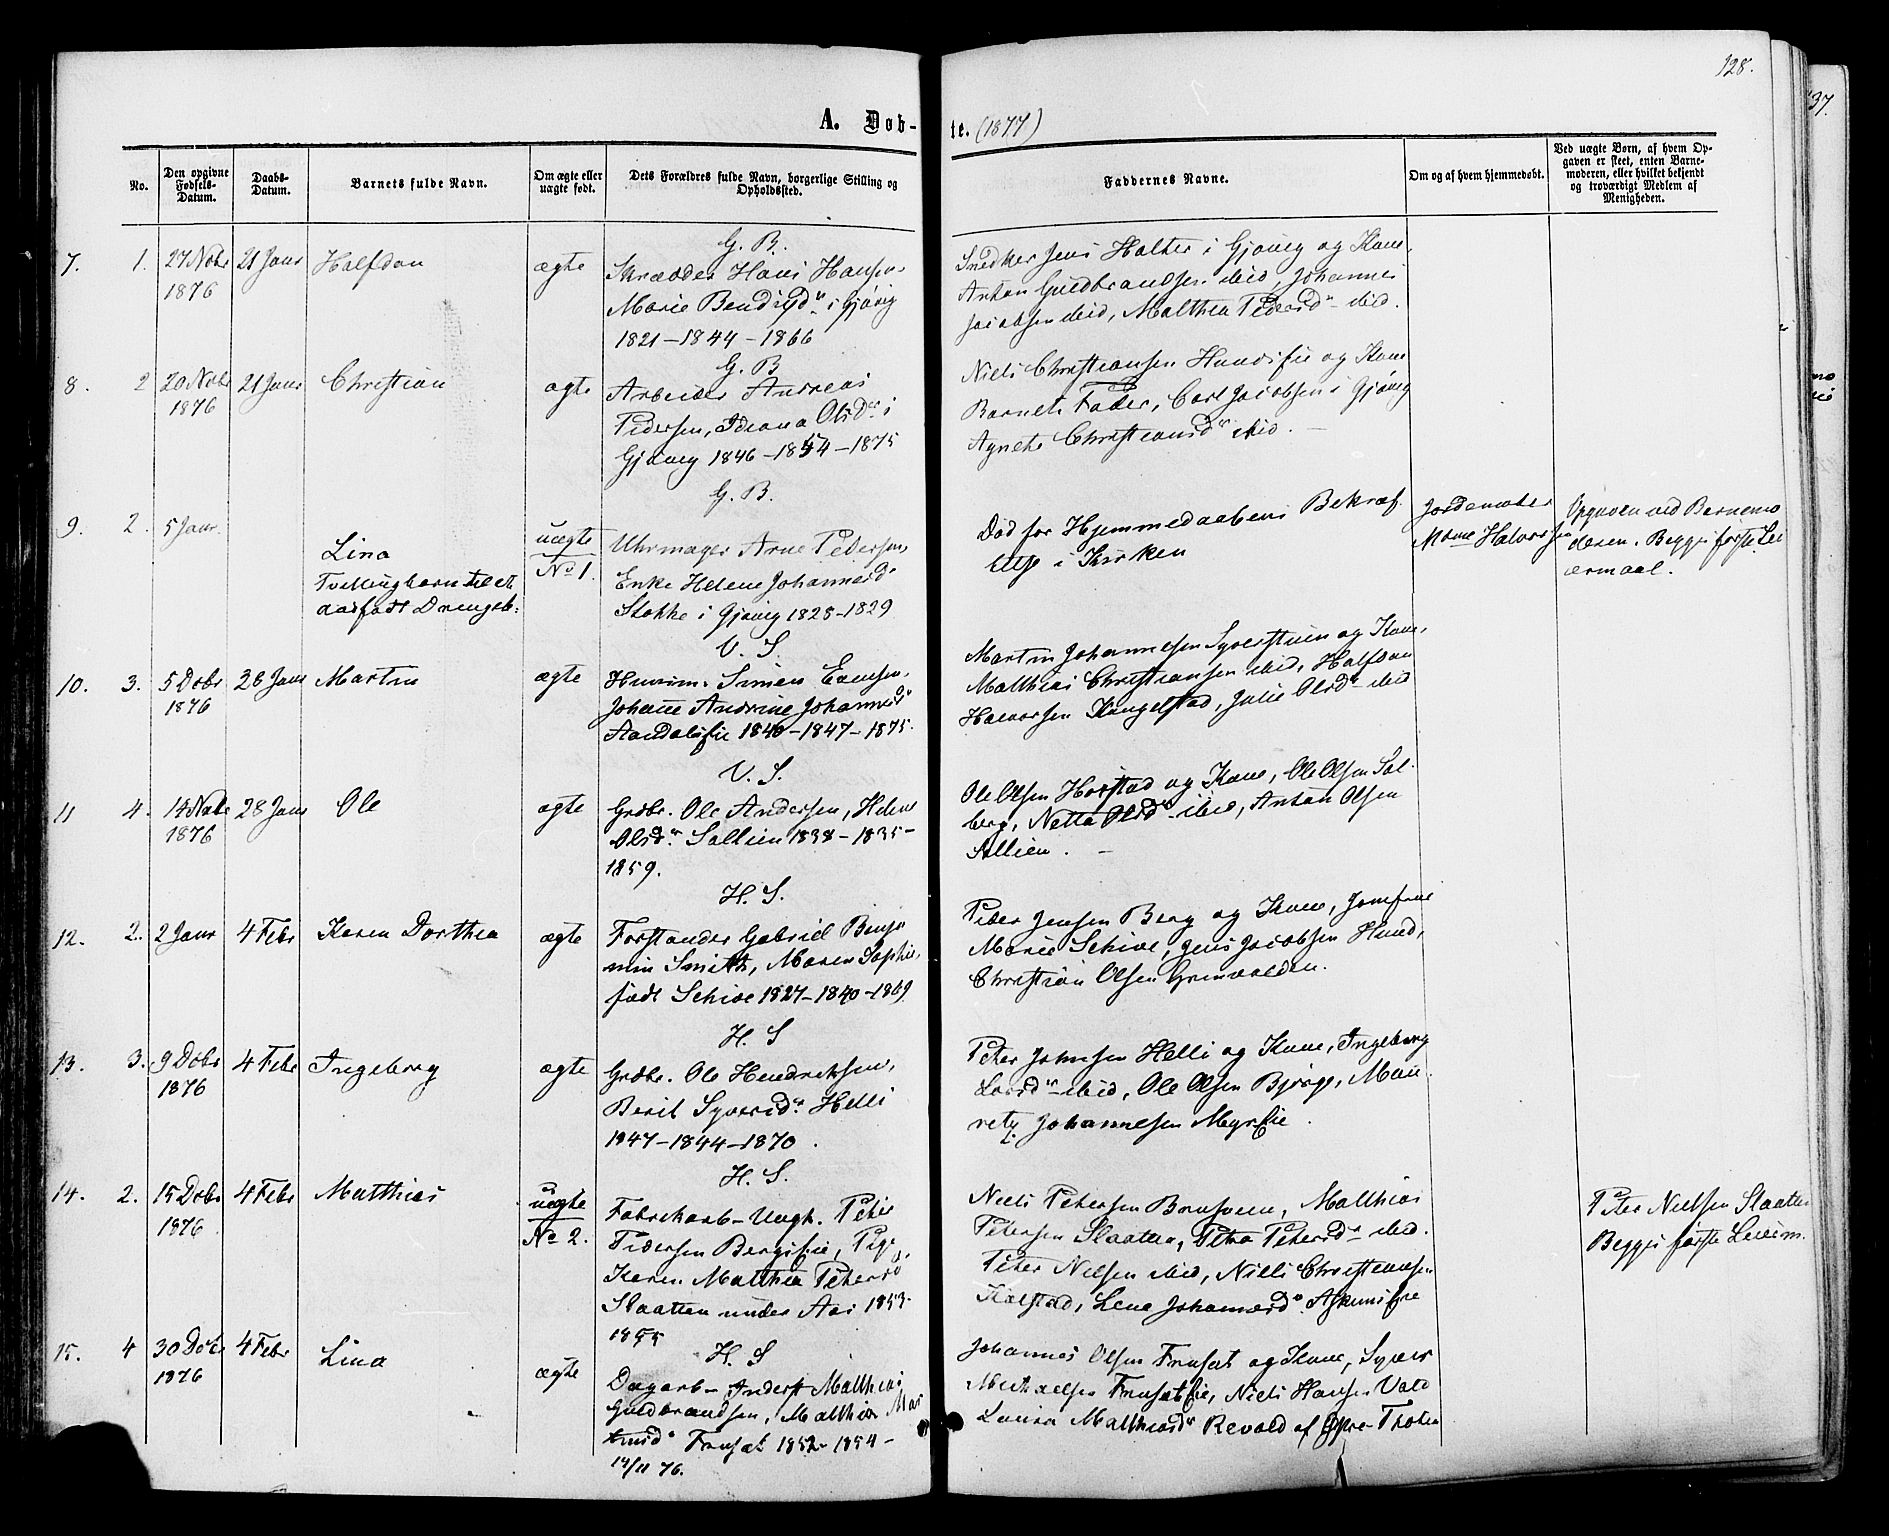 128.
37.
A. Døb-te. (1877)
No.
Den opgivne Fødsels-Datum.
Daabs-Datum.
Barnets fulde Navn.
Om ægte eller uægte født.
Dets Forældres fulde Navn, borgerlige Stilling og Opholdssted.
Faddernes Navne.
Om og af hvem hjemmedøbt.
Ved uægte Børn, af hvem Op-
gaven er skeet, enten Barne-
moderen, eller hvilket bekjendt
og troværdigt Medlem af
Menigheden.
G. B.
7. 1. 27 Novbr 1876 21 Janr Halfdan ægte
Skrædder Hans Hansen,
Marie Bendixdr i Gjøvig
1821 – 1844 – 1866
Snedker Jens Holter i Gjøvig og Kone,
Anton Guldbrandsen ibid, Johannes
Jacobsen ibid, Matthea Pedersdr ibid.
G. B
8. 2 20 Novbr 1876 21 Janr Christian ægte
Arbeider Andreas
Pedersen, Ideana Olsdr i
Gjøvig 1846 – 1854 – 1875
Niels Christiansen Hundsfie og Kone
Barnets Fader, Carl Jacobsen i Gjøvig
Agnethe Christiansdr ibid. –
G. B.
9. 2. 5 Janr.
Lina
Tvillingbarn til et
dødfødt Drengeb:
uægte
No 1.
Uhrmager Arne Pedersen,
Enke Helene Johannesdr
Stokke i Gjøvig 1828 – 1829
Død før Hjemmedaabens Bekræf-
telse i Kirken
Jordemoder
Mdme Halvorsen
Opgaven ved Barnemo
deren. Begges første Lei
ermaal.
V. S.
10. 3. 5 Dcbr 1876 28 Janr Martin ægte
Huusm. Simen Evensen,
Johanne Andrine Johannesdr
Aandalsfie 1840 – 1847 – 1875.
Martin Johannesen Syverstuen og Kone,
Matthias Christiansen ibid, Halfdan
Halvorsen Kongelstad, Julie Olsdr ibid
V. S.
11 4. 14 Novbr 1876 28 Janr Ole ægte
Grdbr. Ole Andersen, Helene
Olsdr Sollien 1838 – 1835 –
1859.
Ole Olsen Horstad og Kone, Ole Olsen Sol-
berg, Netta Olsdr ibid, Anton Olsen
Sollien. –
H. S.
12. 2. 2 Janr 4 Febr Karen Dorthea ægte
Forstander Gabriel Benja
min Smith, Maren Sophie,
født Schive 1827 – 1840 – 1869
Peder Jensen Berg og Kone, Jomfrue
Marie Schive, Jens Jacobsen Hund,
Christian Olsen Grinvolden.
H. S
13. 3. 9 Dcbr 1876 4 Febr Ingeborg ægte
Grdbr. Ole Hendriksen,
Berit Syversdr Helli
1847 – 1844 – 1870.
Peter Johnsen Helli og Kone, Ingeborg
Larsdr ibid, Ole Olsen Bjørge, Mau-
ritz Johannesen Myrfie.
H. S.
14. 2. 15 Dcbr 1876 4 Febr Matthias
uægte
No 2.
Fabrikarb – Ungk. Peter
Pedersen Bergsfie, Pige
Karen Matthea Petersd
Slaatten under Aas 1853 –
1855
Niels Petersen Brusveen, Matthias
Petersen Slaatten, Petra Petersdr ibid.
Peter Nielsen ibid, Niels Christiansen
Kalstad, Lene Johannesdr Askimsfie
Peter Nielsen Slaatten
Begges første Leierm.
H. S
15. 4 30 Dcbr 1876 4 Febr Lina ægte
Dagarb – Anders Matthias
Guldbrandsen, Matthia Mar
Frusæt 1852 – 1854 –
14/11 76.
Johannes Olsen Frusæt og Kone, Syver
Michaelsen Frusætfie, Niels Hansen Vold
Louisa Matthiasdr Revold af Østre Thoten